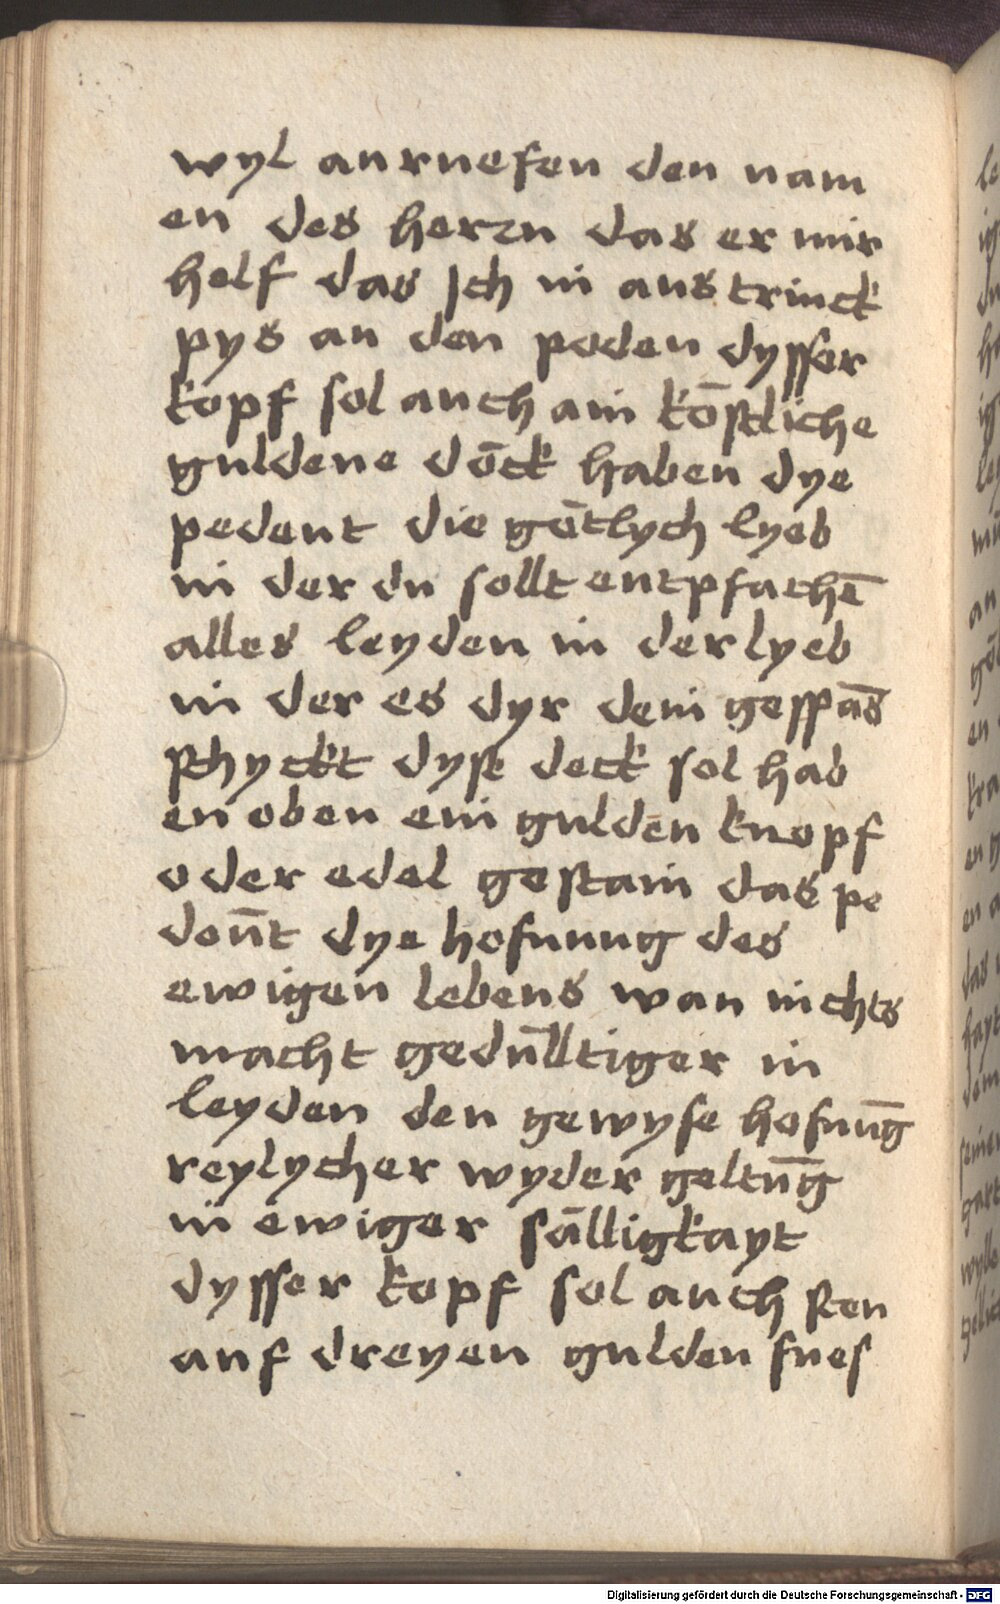 wyl anruefen den nam
en des herrn das er mir
helf das jch in austrinck
pys an den poden dysser
kopf sol auch ain kōstliche
guldene dōck haben dye
pedeut die gōtlych lyeb
in der du sollt entpfachē
alles leyden in der lyeb
in der es dyr dein gesspās
schyckt dyse deck sol hab
en oben ein gulden knopf
oder edel gestain das pe
deūt dye hofnung des
ewigen lebens wan nichts
macht gedūlltiger in
leyden den gewyse hofnūg
reylycher wyder geltūg
in ewiger sālligkayt
dysser kopf sol auch sten
auf dreyen gulden fues
Digitalisierung gefördert durch die Deutsche Forschungsgemeinschaft - DFG